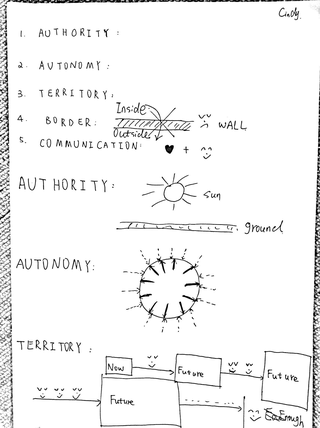 Cindy.
1. AUTHORITY:
2. AUTONOMY:
3. TERRITORY:
Inside
4. BORDER:
WALL
Outside
5. COMMUNICATION:
+
AUTHORITY:
sun
ground
AUTONOMY:
TERRITORY:
Now
Future
Future
Future